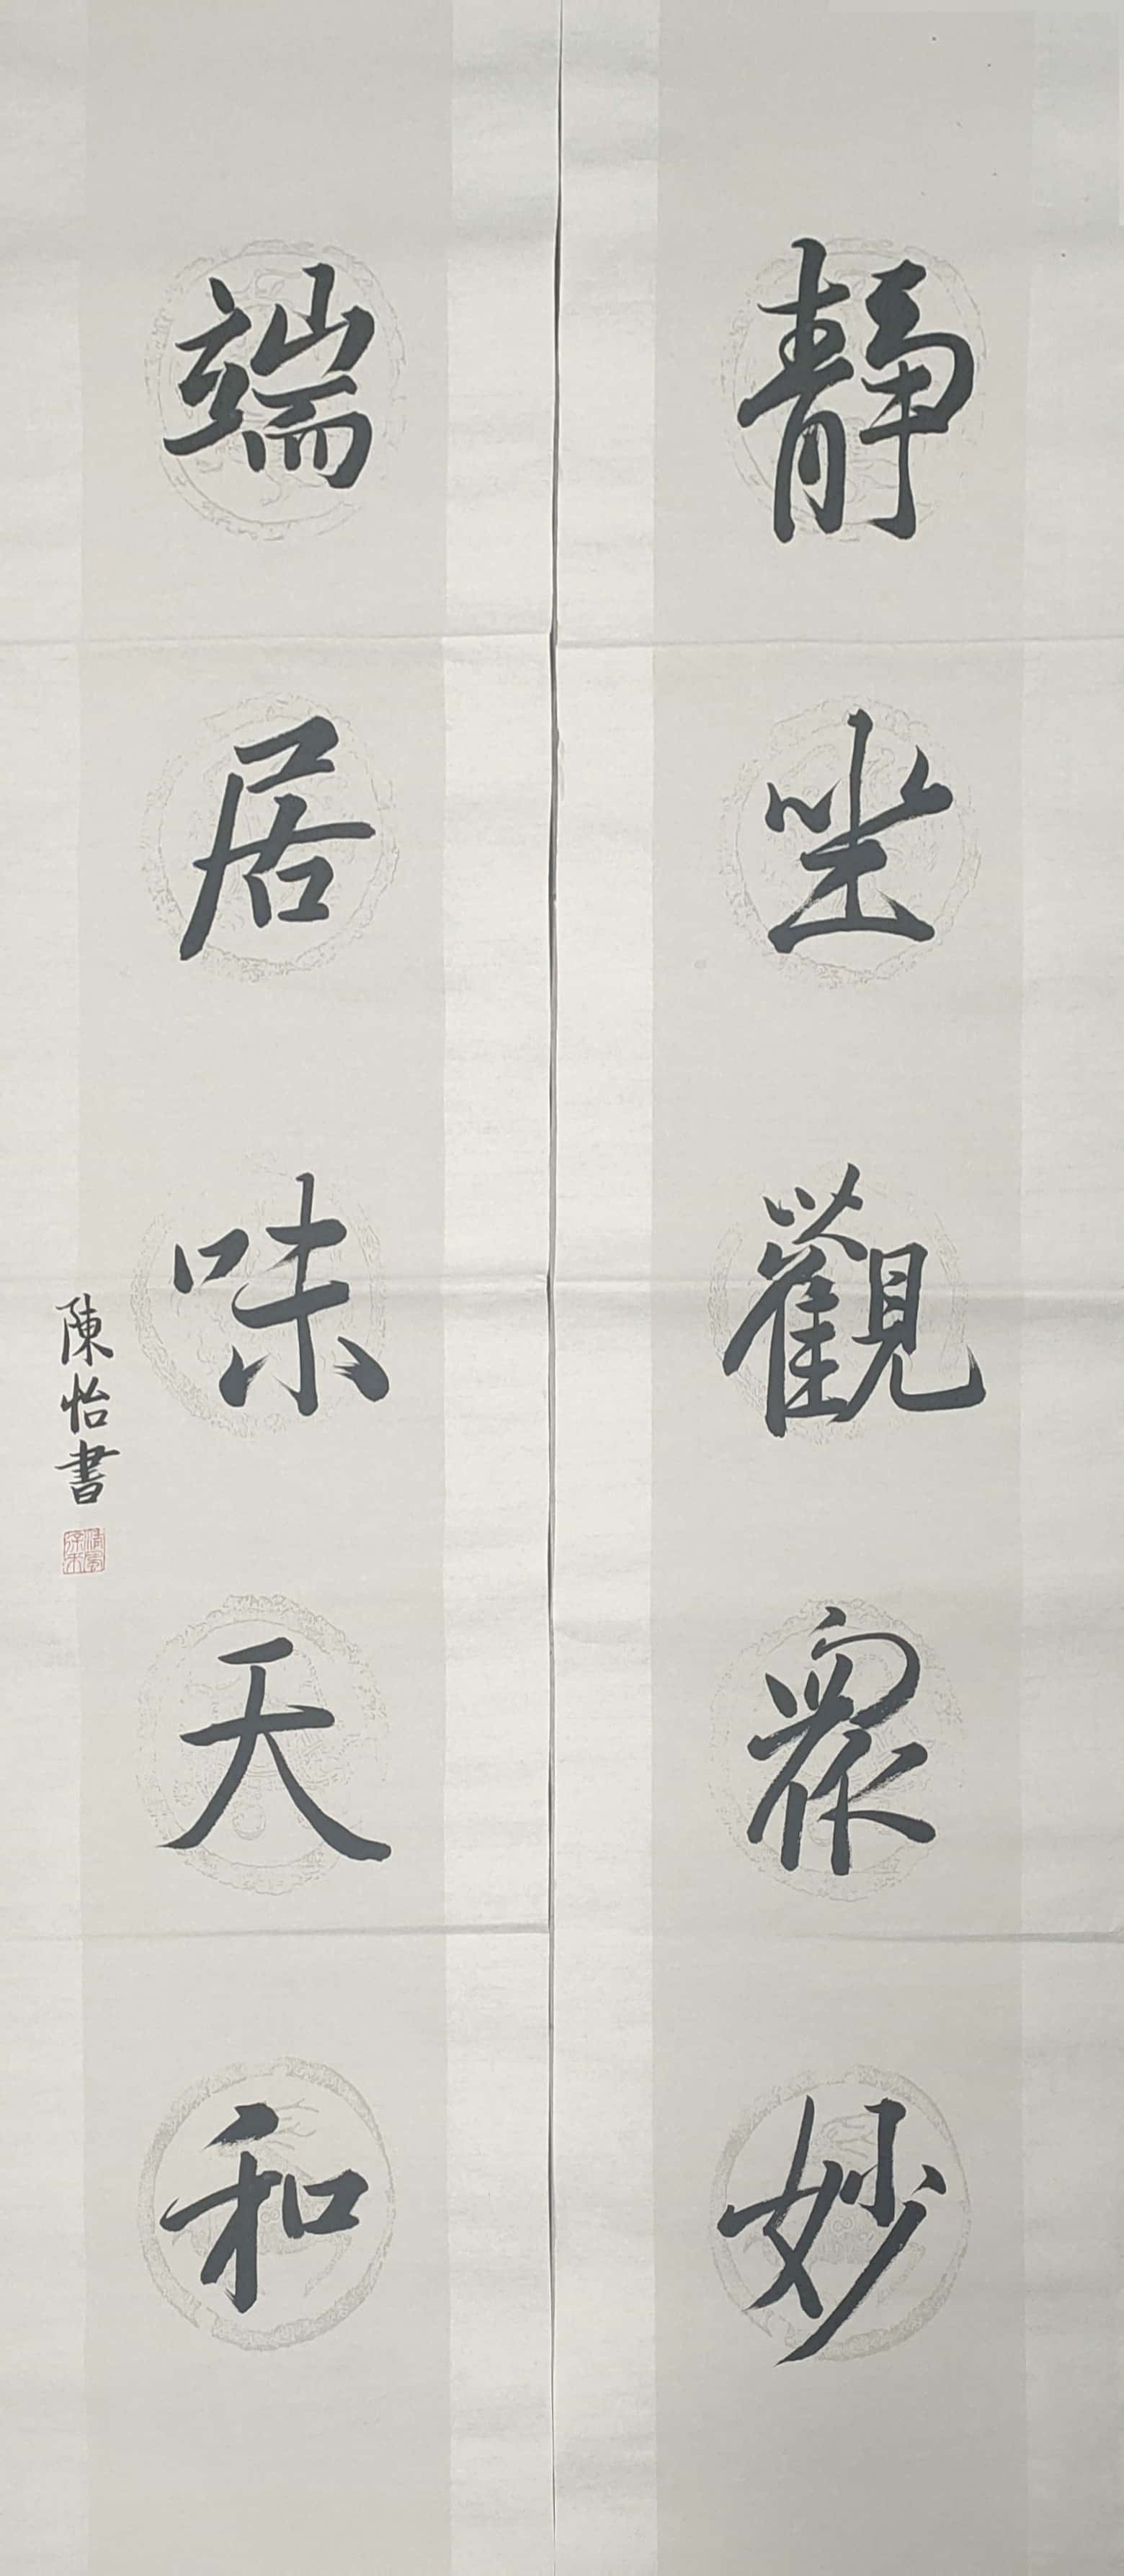 靜坐觀衆妙
端居味天和
陳怡書